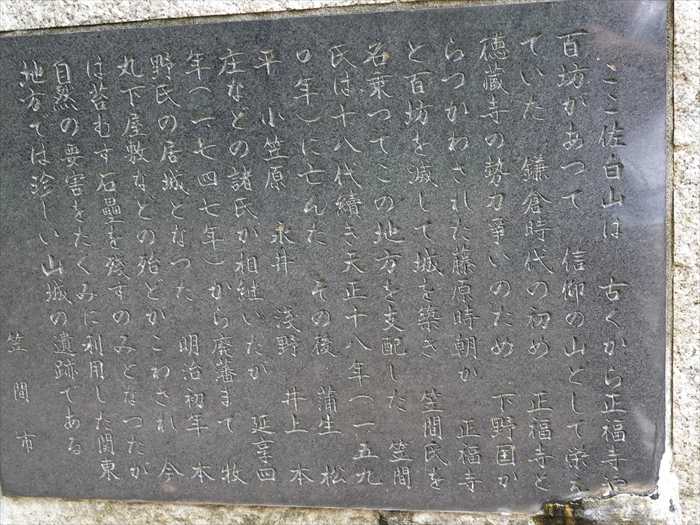 ここ佐白山は　古くから正福寺や
百坊があつて　信仰の山として栄え
ていた　鎌倉時代の初め　正福寺と
徳蔵寺の勢力争いのため　下野国か
らつかわされた藤原時朝が　正福寺
と百坊を滅して城を築き　笠間氏を
名乗つてこの地方を支配した　笠間
氏は十八代続き天正十八年（一五九
〇年）に亡んだ　その後　蒲生　松
平　小笠原　永井　浅野　井上　本
庄などの諸氏が相継いたが　延享四
年（一七四七年）から廃藩まで　牧
野氏の居城となつた　明治初年　本
丸下屋敷などの殆どがこわされ　今
は苔むす石壘を残すのみとなつたが
自然の要害をたくみに利用した関東
地方では珍しい山城の遺跡である
笠間市